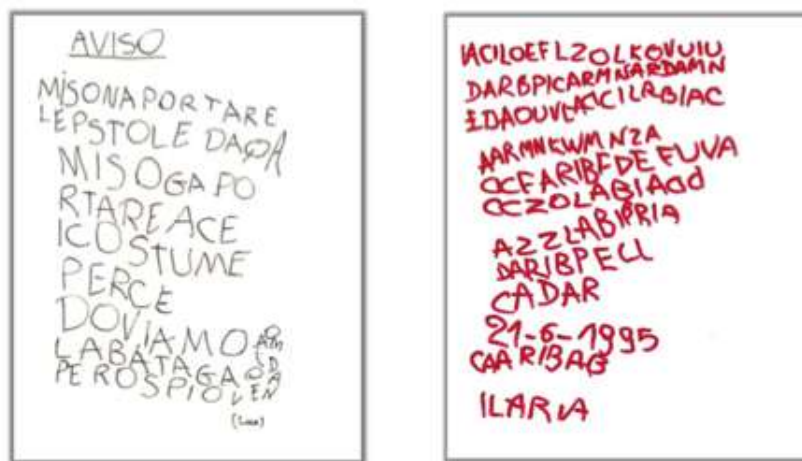 AVISO
MISONAPORTARE
LEPSTOLE DAQA
MISOGAPO
RTARE ACE
ICOSTUME
PERCE
DOVIAMO
LABATAGA
PEROSPIO
(Luca)
IACILOEFLZOLKOVUIU
DARBPICARMNARDAMN
AARMNKWMNZA
OCFARIBFDEFUVA
OCZOLABIAOd
AZZLABIPRIA
DARIBPELL
CADAR
21-6-1995
CAARIBAG
ILARIA